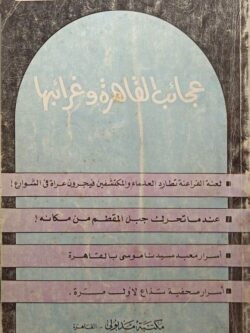 عجائب القاهرة وغرائبها
لعنة الفراعنة تطارد العلماء والمكتشفين فيجرون عراة في الشوارع !
عندما تحرك جبل المقطم من مكانه !
أسرار معبد سيدنا موسى بالقاهرة
أسرار صحفية تذاع لأول مرة .
مكتبة مدبولى - القاهرة